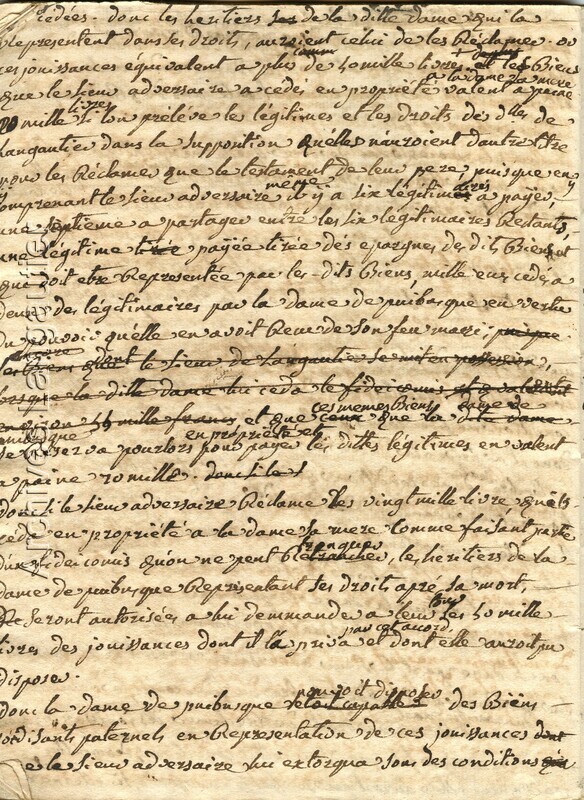 cédées. donc les heritiers de la ditte dame qui la
Representent dans ses droits, auroient celui de les Réclamer. ou
ces jouissances equivalent a plus de 40 mille livres et les Biens
que le sieur adversaire a cedés en propriété a la dame sa mere valent a peine
20 mille livres si l'on préléve les légitimes et les droits des dlles de
Langautier dans la suposition quélles n'auroient d'autre titre
pour les Réclamer que le testament de leur pere, puis que en y
comprenant le sieur adversaire meme il y a six légitimaires a payer,
une septieme a partager entre les six légitimaires Restants,
une légitime payée tirée des epargnes des dits Biens et
que doit etre Representée par les dits Biens, mille ecus cédés a
deux des légitimaires par la dame de puibusque en vertu
du pouvoir qu'elle en avoit Reçu de son feu mari;
les Biens dont le sieur de Langautier se mit en possession,
lorsque la ditte dame lui ceda le fideicomis
49 mille francs et que ces memes Biens que la dame de
puibusque se Reserva en propriété et pour lors pour payer les dittes légitimes en valent
a peine 20 mille. donc si le
donc si le sieur adversaire Réclame les vingt mille livre qu'il
céda en propriété a la dame sa mere comme faisant partie
d'un fideicomis qu'on ne peut tronquer, les heritiers de la
dame de puibusque Representant ses droits apré sa mort,
Reseront autorisées a lui demmande a leur tour les 40 mille
livres des jouissances dont il la priva par cet accord et dont elle auroit pu
disposer.
donc la dame de puibusque pouvoit disposer des Biens
soi disants paternels en Representation de ces jouissances dont
le sieur adversaire lui extorqua sous des conditions
Archives Nanguitier